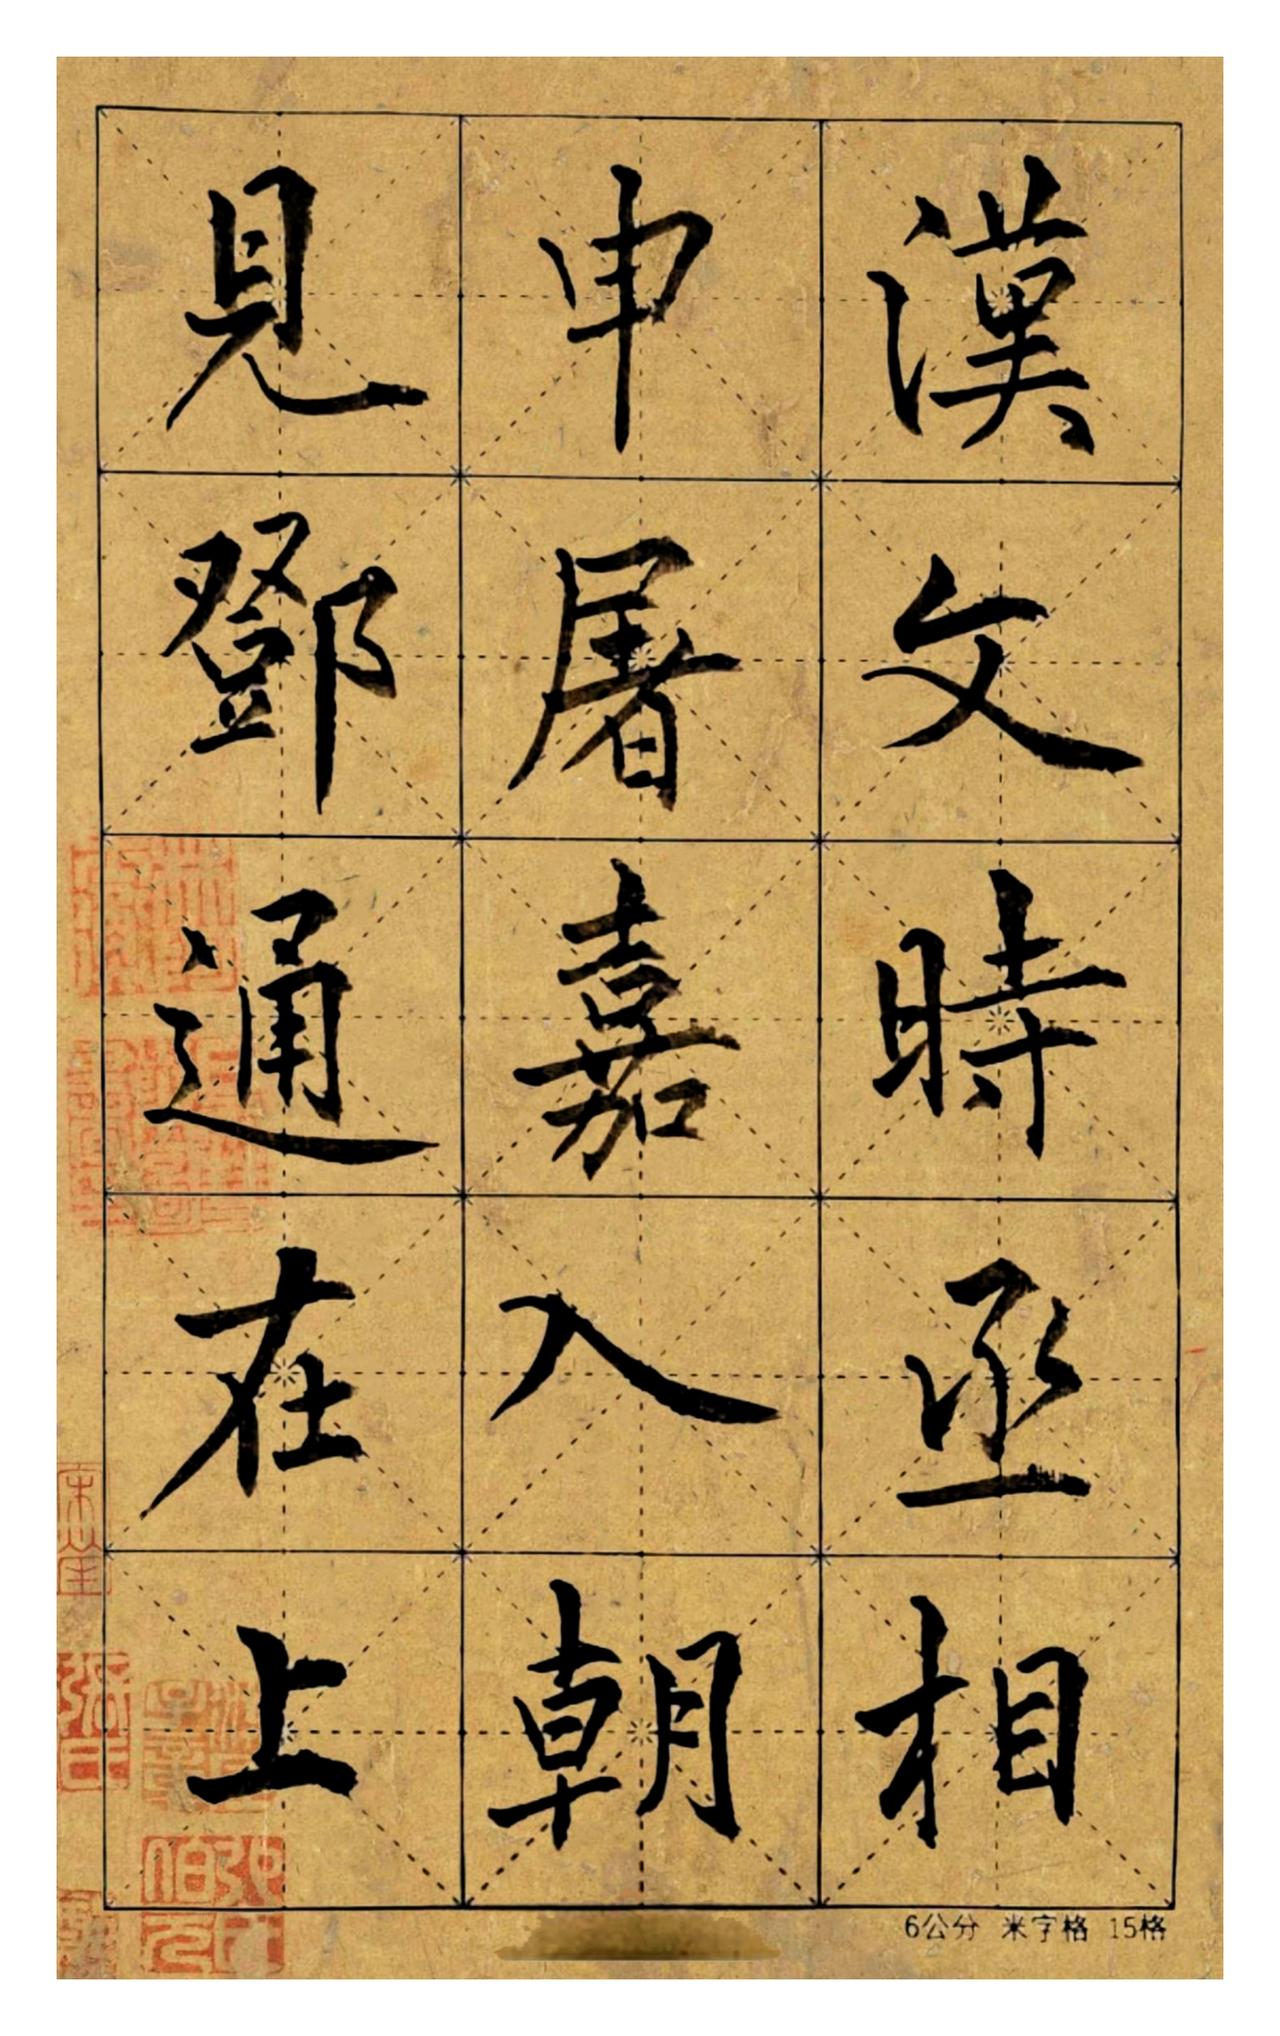 漢文時丞相
申屠嘉入朝
見鄧通在上
6公分 米字格 15格